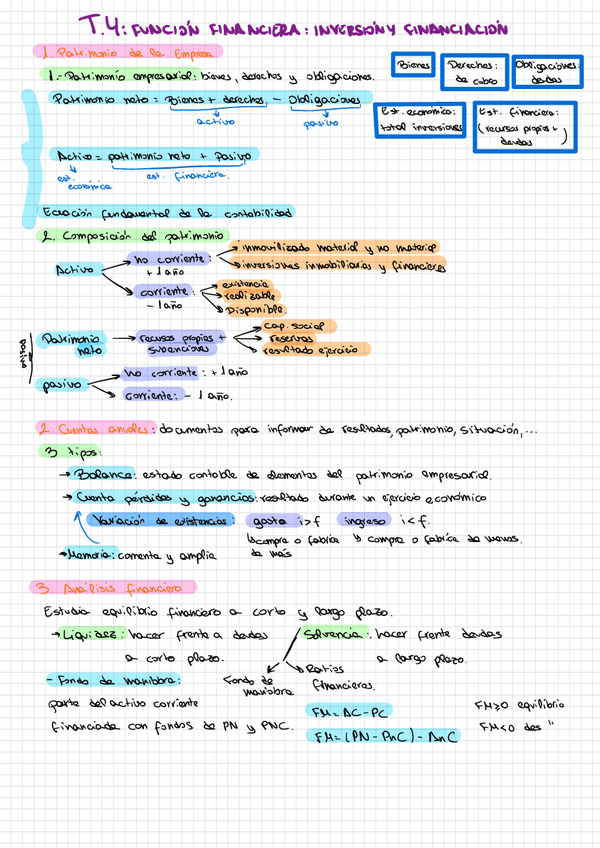 T.4: FUNCIÓN FINANCIERA: INVERSIÓN Y FINANCIACIÓN
1. Patrimonio de la Empresa
1.- Patrimonio empresarial: bienes, derechos y obligaciones.
Bienes
Derechos: de cobro
Obligaciones: deudas
Patrimonio neto = Bienes + derechos - Obligaciones
activo
pasivo
Est. económica: total inversiones
Est. financiera: (recursos propios + deudas)
Activo = patrimonio neto + Pasivo
est. económica
est. financiera
Ecuación fundamental de la contabilidad
2. Composición del patrimonio
Activo
no corriente: + 1 año
inmovilizado material y no material
inversiones inmobiliarias y financieras
corriente: - 1 año
existencia
realizable
Disponible.
pasivo
Patrimonio neto
recursos propios + subvenciones
cap. social
reservas
resultado ejercicio
pasivo
no corriente: + 1 año
corriente: - 1 año.
2. Cuentas anuales: documentos para informar de resultados, patrimonio, situación,...
3 tipos:
Balance: estado contable de elementos del patrimonio empresarial.
Cuenta pérdidas y ganancias: resultado durante un ejercicio económico
Variación de existencias: gasto i>f ingreso i<f.
compra o fabrica de más
compra o fabrica de menos.
Memoria: comenta y amplia
3. Análisis financiero
Estudia equilibrio financiero a corto y largo plazo.
Liquidez: hacer frente a deudas a corto plazo.
Solvencia: hacer frente deudas a largo plazo.
Fondo de maniobra
Ratios financieros.
- Fondo de maniobra:
parte del activo corriente
financiada con fondos de PN y PNC.
FM = AC - PC
FM = (PN - PnC) - AnC
FM≥0 equilibrio
FM<0 des "